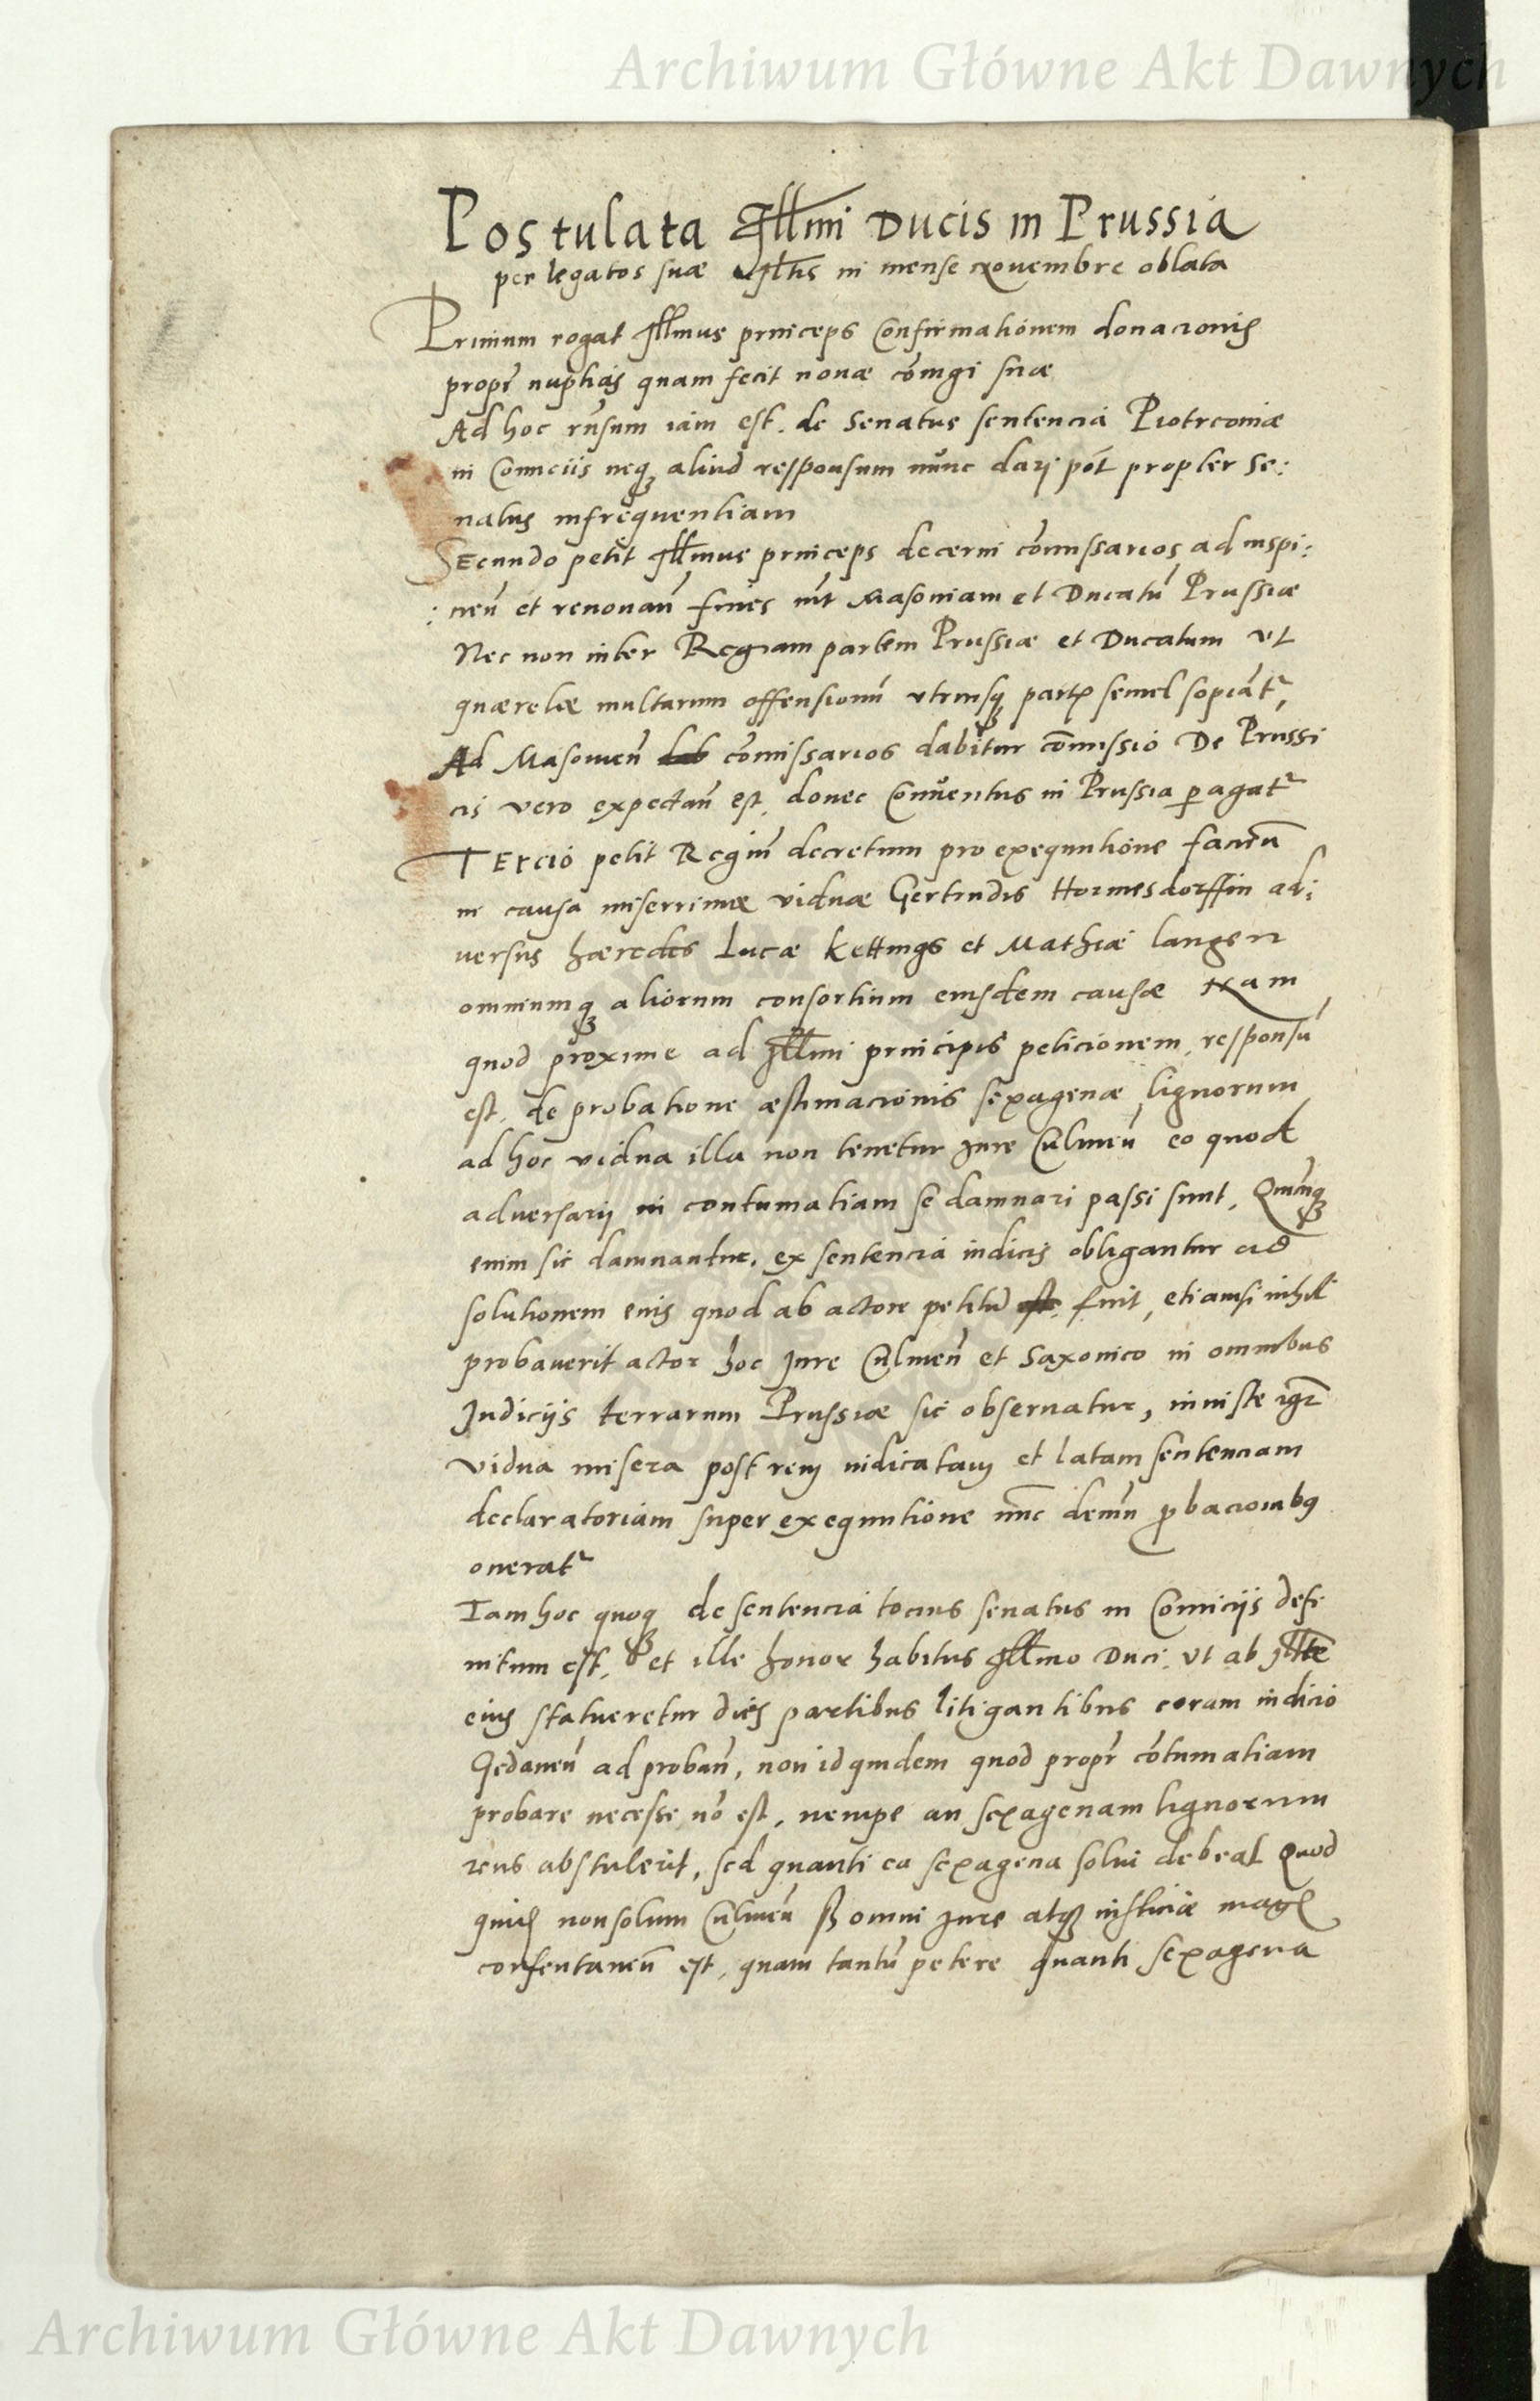 Archiwum Główne Akt Dawnych
Postulata Illmi Ducis in Prussia
per legatos suæ Illtis in mense Novembre oblata
Primum rogat Illmus princeps Confirmationem donacionis
proptr nuptias quam fecit novæ cōiugi suæ
Ad hoc rn̄sum iam est. de Senatus sentencia Piotrconiæ
in Comiciis neq₃ aliud responsum nunc dari pōt propter Se:
natus infrequentiam
Secundo petit Illmus princeps decerni cōmissarios ad inspi:
: cien̄ et renovan̄ fines int̄ Masoniam et Ducatū Prussiæ
Nec non inter Regiam partem Prussiæ et Ducatum vt
quærelæ multarum offensionū vtriusq₃ partꝭ semel sopiāt͛,
Ad Masovien̄ cōmissarios dabitur cōmissio De Prussi
cis vero expectan̄ est. donec Conventus in Prussia ꝑagat͛
Tercio petit Regiū decretum pro exequutione faciēn
in causa miserrimæ viduæ Gertrudis Hormesdorffin ad:
versus hæredes Lucæ Kettings et Mathiæ langen
omniumq₃ aliorum consortium eiusdem causæ Nam
quod proxime ad Illmi principis peticionem, responsū
est. de probatione æstimacionis sexagenæ lignorum
ad hoc vidua illa non tenetur iure Culmen̄ eo quod
adversarij in contumatiam se damnari passi sunt, Quicūq₃
enim sic damnantur, ex sentencia iudicis obligantur ad
solutionem eius quod ab actore petitū fuit, etiamsi nihil
probaverit actor hoc Jure Culmen̄ et Saxonico in omnibus
Judiciis terrarum Prussiæ sic observatur, iniuste igr͛
vidua misera post rem iudicatam et latam sentenciam
declaratoriam super exequutione nūc demū ꝓbacionibꝰ
onerat͛
Iam hoc quoq₃ de sentencia tocius senatus in Comiciis defi
nitum est, et ille honor habitus Illmo Duci, vt ab Illte
eius statueretur dies partibus litigantibus coram iudicio
Gedanen̄ ad proban̄, non id quidem quod proptr cōtumatiam
probare necesse nō est, nempe an sexagenam lignorum
reus abstulerit, sed quanti ea sexagena solui debeat Quod
quidꝫ non solum Culmen̄ sꝫ omni iure atq₃ iusticiæ magꝭ
consentaneū est, quam tantū petere quanti sexagena
Archiwum Główne Akt Dawnych